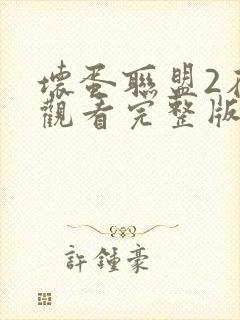 壞蛋聯盟2
觀看完整版
許鍾豪